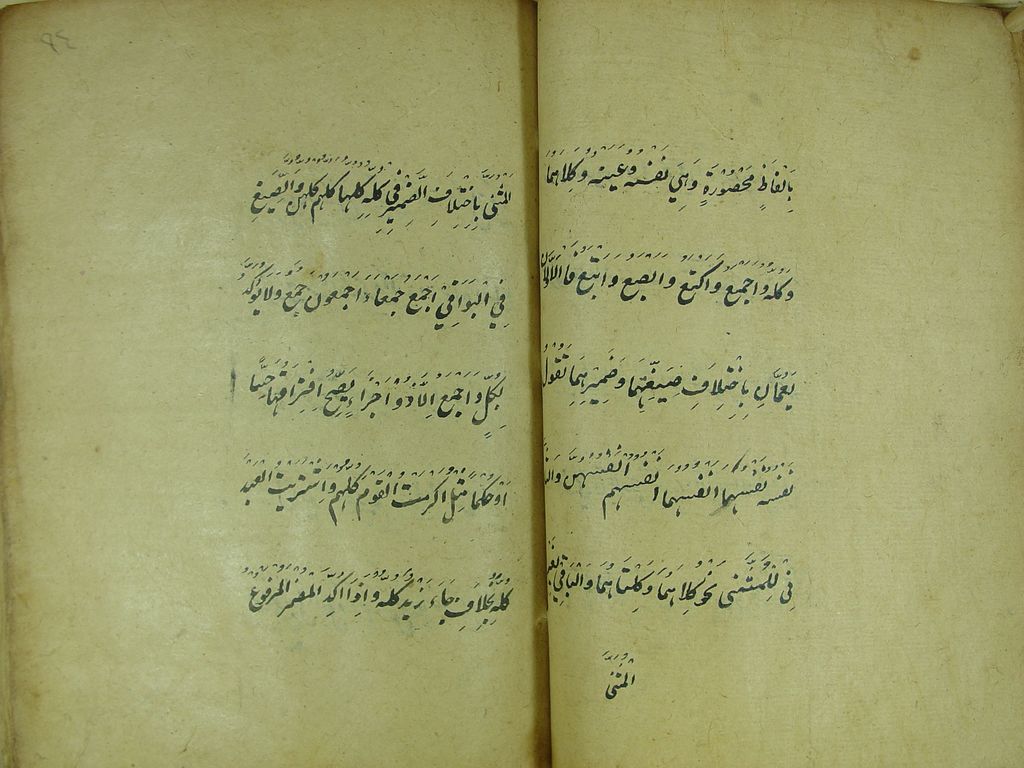 بِاَلْفَاظٍ مَحْصُورَةٍ وَهِيَ نَفْسُهُ وَعَيْنُهُ وَكِلَاهُمَا
وكله واجمع واكتع وابصع وابتع فالاولان
يَعُمَّانِ بِاِخْتِلَافِ صِيغَتِهِمَا وَضَمِيرِهِمَا تَقُولُ
نفسه نفسهما انفسهما انفسهم انفسهن والثا
نِي لِلْمُثَنَّى نَحْوُ كِلَاهُمَا وَكِلْتَاهُمَا وَالْبَاقِي لِغَيْرِ
المثنى
المُثنى بِاِخْتِلَافِ الضَّمِيرِ فِي كُلِّهِ كلها كلهم كلهن وَالصِّيَغِ
فِي الْبَوَاقِي اَجْمَعُ جَمْعَاءُ اَجْمَعُونَ جُمَعُ وَلَا يُؤَكَّدُ
بِكُلٍّ وَاَجْمَعَ اِلَّا ذُو اَجْزَاءٍ يَصِحُّ اِفْتِرَاقُهَا حِسًّا
اَوْ حُكْمًا مِثْلُ اكرمت القوم كلهم واشتريت العبد
كلَّهُ بِخِلَافِ جَاءَ زَيْدٌ كله وَاِذَا اُكِّدَ المضمر المرفوع